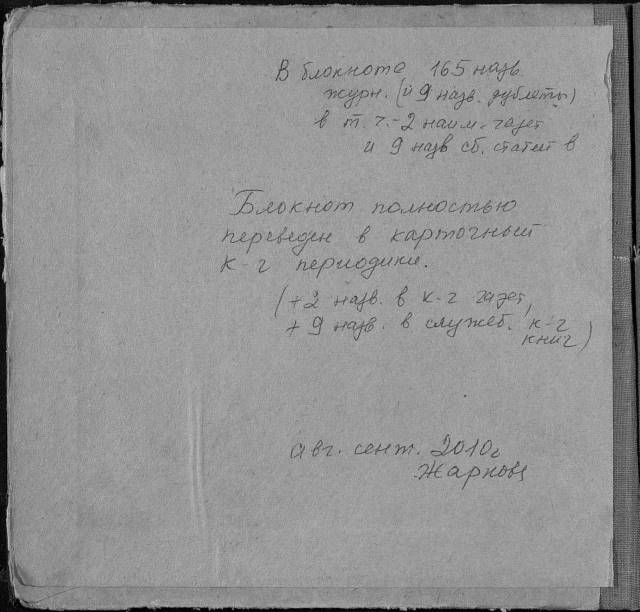 В блокноте 165 назв.
журн. (и 9 назв. дублеты)
в т.ч. - 2 наим. газет
и 9 назв сб. статей в
Блокнот полностью
переведен в карточный
к-г периодики.
(+2 назв. в к-г газет,
+ 9 назв. в служеб. к-г
книг)
авг. сент. 2010г
Жаркова